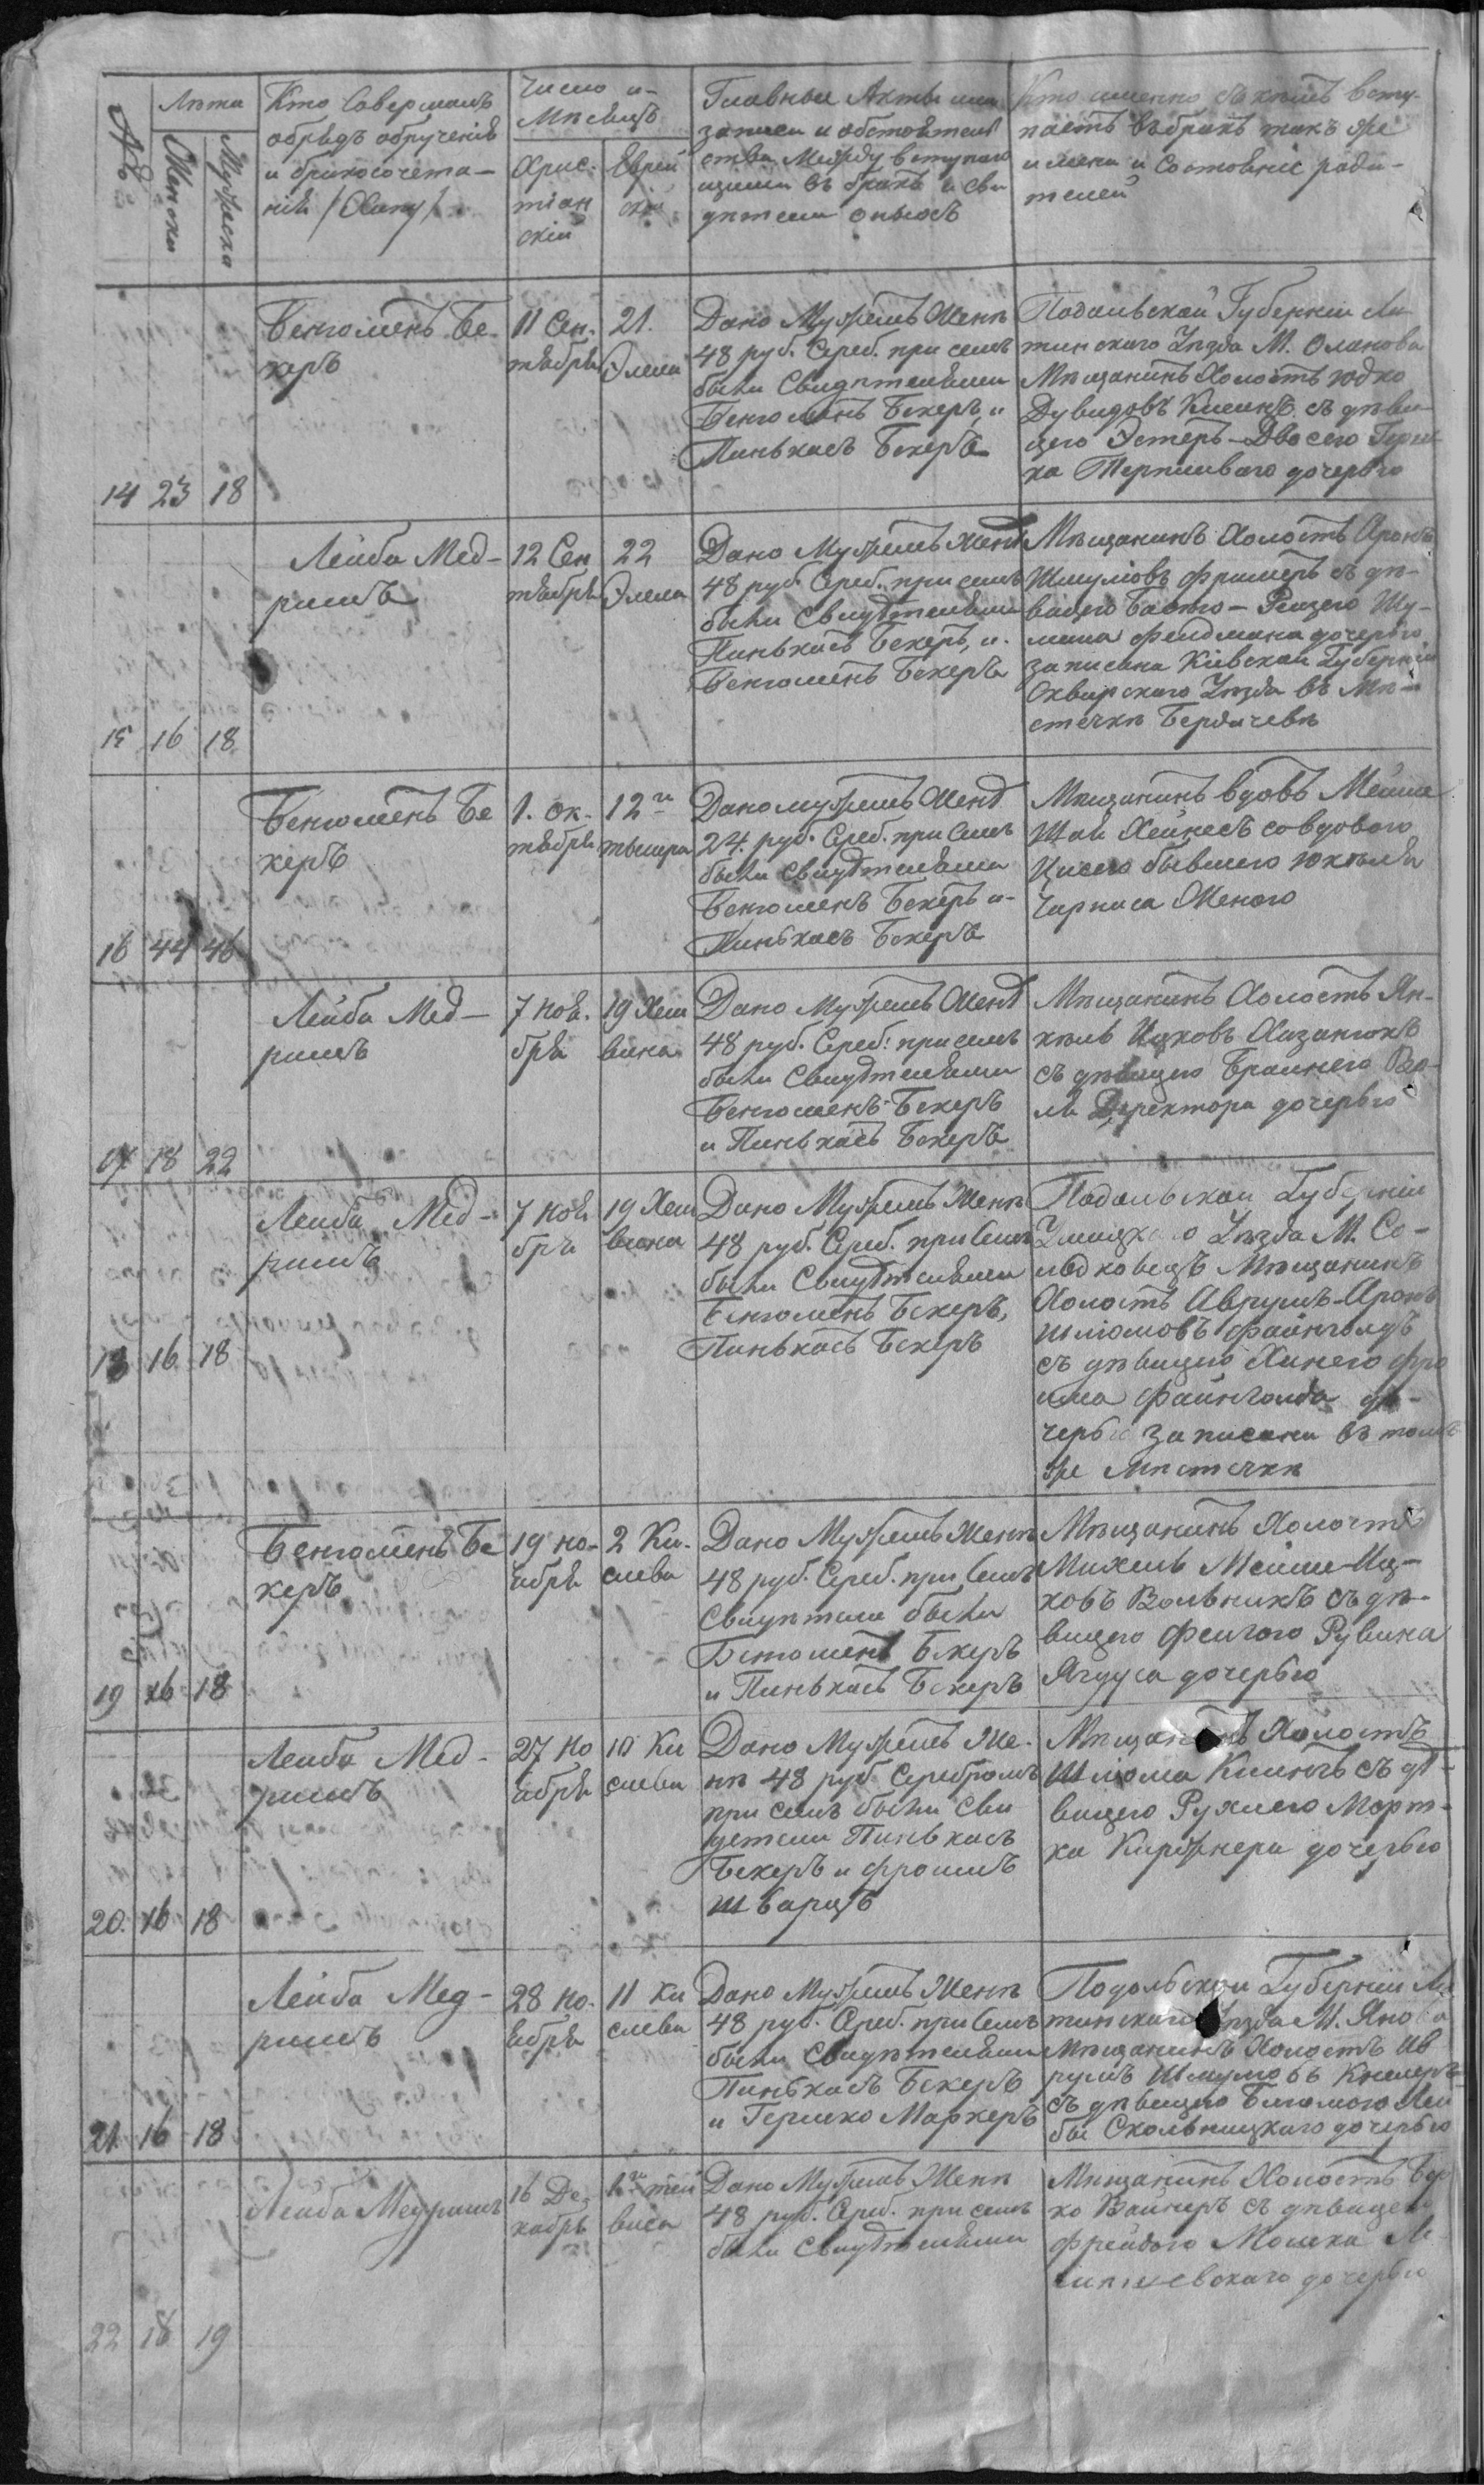 №
Лѣта
Женски
Мужеска
Кто Совершалъ
обрядъ обрученія
и бракосочета-
нія
Число и
Мѣсяцъ
Хрис-
тіан
скій
Еврей
скій
Главные Акты или
записи и обстоятель
ства между вступаю
щими въ бракъ и сви
дѣтели оныхъ
Кто именно съ кѣмъ всту-
паетъ въ бракъ такъ же
имена и Состояніе роди-
телей
14 23 18
Бенюменъ Бе-
керъ
11 Сен-
тября
21.
Элела
Дано Мужемъ Женѣ
48 руб. Сереб. при семъ
были Свидѣтелями
Бенюменъ Бекеръ, и
Пинькасъ Бекеръ
Подольской Губерніи Ли-
тинскаго Уѣзда М.
Мѣщанинъ Холостъ Юдко
Дувидовъ съ дѣви-
цею Эстеръ-Двосею Герш-
ка дочерью
15 16 18
Лейба Мед-
ришъ
12 Сен
тября
22
Элела
Дано Мужемъ Женѣ
48 руб. Сереб. при семъ
были Свидѣтелями
Пинькасъ Бекеръ, и
Бенюменъ Бекеръ
Мѣщанинъ Холостъ Аронъ
Шмулевъ съ дѣ-
вицею Басею- Рейзею Шу-
лима Фельдмана дочерью
записана Кіевской Губерніи
Сквирскаго Уѣзда въ Мѣ-
стечкѣ Бердичевѣ
16 44 46
Бенюменъ Бе
керъ
1. Ок-
тября
12го
тышра
Дано мужемъ Женѣ
24 руб. Сереб. при семъ
были Свидѣтелями
Бенюменъ Бекеръ и-
Пинькасъ Бекеръ
Мѣщанинъ вдовъ Мейше
Шая Хейнесъ со вдовою
бывшею Юкеля
Женою
17 18 22
Лейба Мед-
ришъ
7 Ноя-
бря
19 Хеш
вана
Дано Мужемъ Женѣ
48 руб. Сереб. при семъ
были Свидѣтелями
Бенюменъ Бекеръ
и Пинькасъ Бекеръ
Мѣщанинъ Холостъ Ян-
кель Ицковъ Хазанюкъ
съ дѣвицею
Деректора дочерью
18 16 18
Лейба Мед-
ришъ
7 Ноя
бря
19 Хеш
вана
Дано Мужемъ Женѣ
48 руб. Сереб. при семъ
были Свидѣтелями
Бенюменъ Бекеръ,
Пинькасъ Бекеръ
Подольской Губерніи
Уѣзда М. Со-
лодковецъ Мѣщанинъ
Холостъ Аврумъ-Аронъ
Шліомовъ Файнгольдъ
съ дѣвицею Ханею Фро
има Файнгольда до-
черью записани въ томъ
же Мѣстечкѣ
19 16 18
Бенюменъ Бе
керъ
19 Но-
ября
2 Ки-
слева
Дано Мужемъ Женѣ
48 руб. Сереб. при семъ
Свидѣтели были
Бенюменъ Бекеръ
и Пинькасъ Бекеръ
Мѣщанинъ Холостъ
Михель Мейше-Иц-
ковъ Вольникъ съ дѣ-
вицею Фейгою Рувина
дочерью
20. 16 18
Лейба Мед-
ришъ
27 Но
ября
10 Ки
слева
Дано Мужемъ Же-
нѣ 48 руб. Серебромъ
при семъ были Сви
детели Пинькасъ
Бекеръ и Фроимъ
Шварцъ
Мѣщанинъ Холостъ
Шліома съ дѣ-
вицею Рухлею Морт-
ка Киржнера дочерью
21 16 18
Лейба Мед-
ришъ
28 Но-
ября
11 Ки
слева
Дано Мужемъ Женѣ
48 руб. Сереб. при семъ
были Свидѣтелями
Пинькасъ Бекеръ
и Гершко Маркеръ
Подольской Губерніи Ли
тинскаго Уѣзда М. Янова
Мѣщанинъ Холостъ Ав
румъ Шмулевъ
съ дѣвицею Лей
бы Скольницкаго дочерью
22 18 19
Лейба Медришъ
16 Де-
кабрь
Дано Мужемъ Женѣ
48 руб. Сереб. при семъ
были Свидѣтелями
Мѣщанинъ Холостъ
ко Вайнеръ съ дѣвицею
Фрейдою Мошка
дочерью